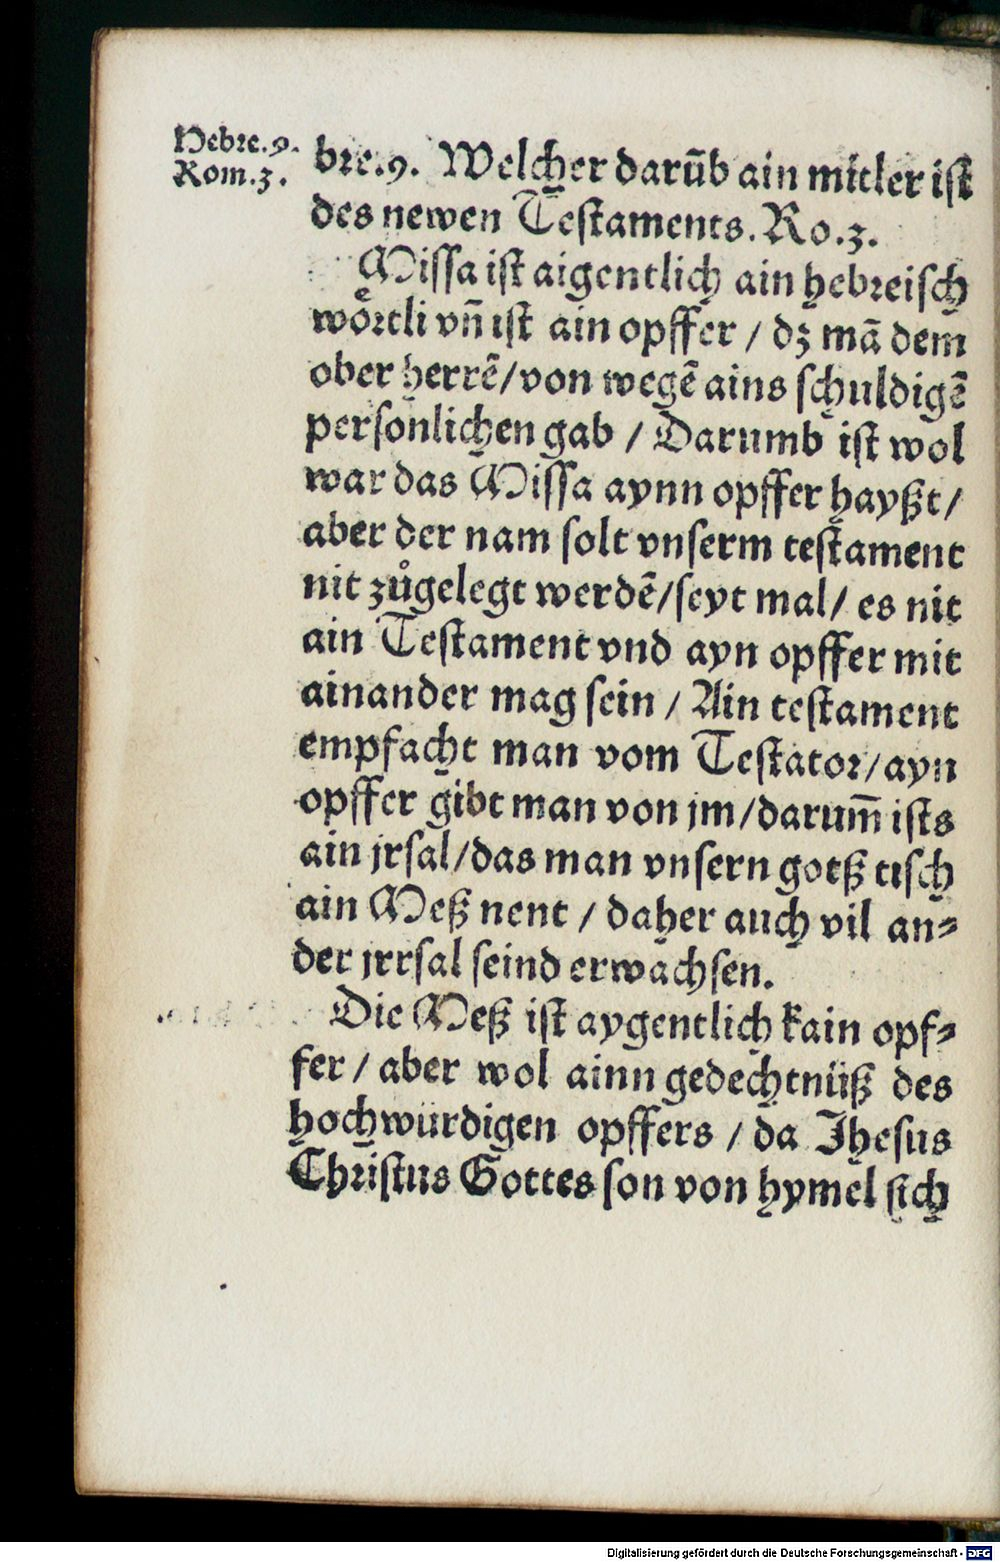 Hebre.9.
Rom.3.
bre.9. Welcher darūb ain mitler ist
des newen Testaments. Ro.3.
Missa ist aigentlich ain hebreisch
wörtli vn̄ ist ain opffer / dz mā dem
ober herrē/von wegē ains schuldigē
personlichen gab / Darumb ist wol
war das Missa aynn opffer hayßt/
aber der nam solt vnserm testament
nit zůgelegt werdē/seyt mal/ es nit
ain Testament vnd ayn opffer mit
ainander mag sein / Ain testament
empfacht man vom Testator/ayn
opffer gibt man von jm/darum̄ ists
ain jrsal/das man vnsern gotß tisch
ain Meß nent / daher auch vil an⸗
der jrrsal seind erwachsen.
Die Meß ist aygentlich kain opf⸗
fer / aber wol ainn gedechtnüß des
hochwurdigen opffers / da Jhesus
Christus Gottes son von hymel sich
Digitalisierung gefördert durch die Deutsche Forschungsgemeinschaft - DFG